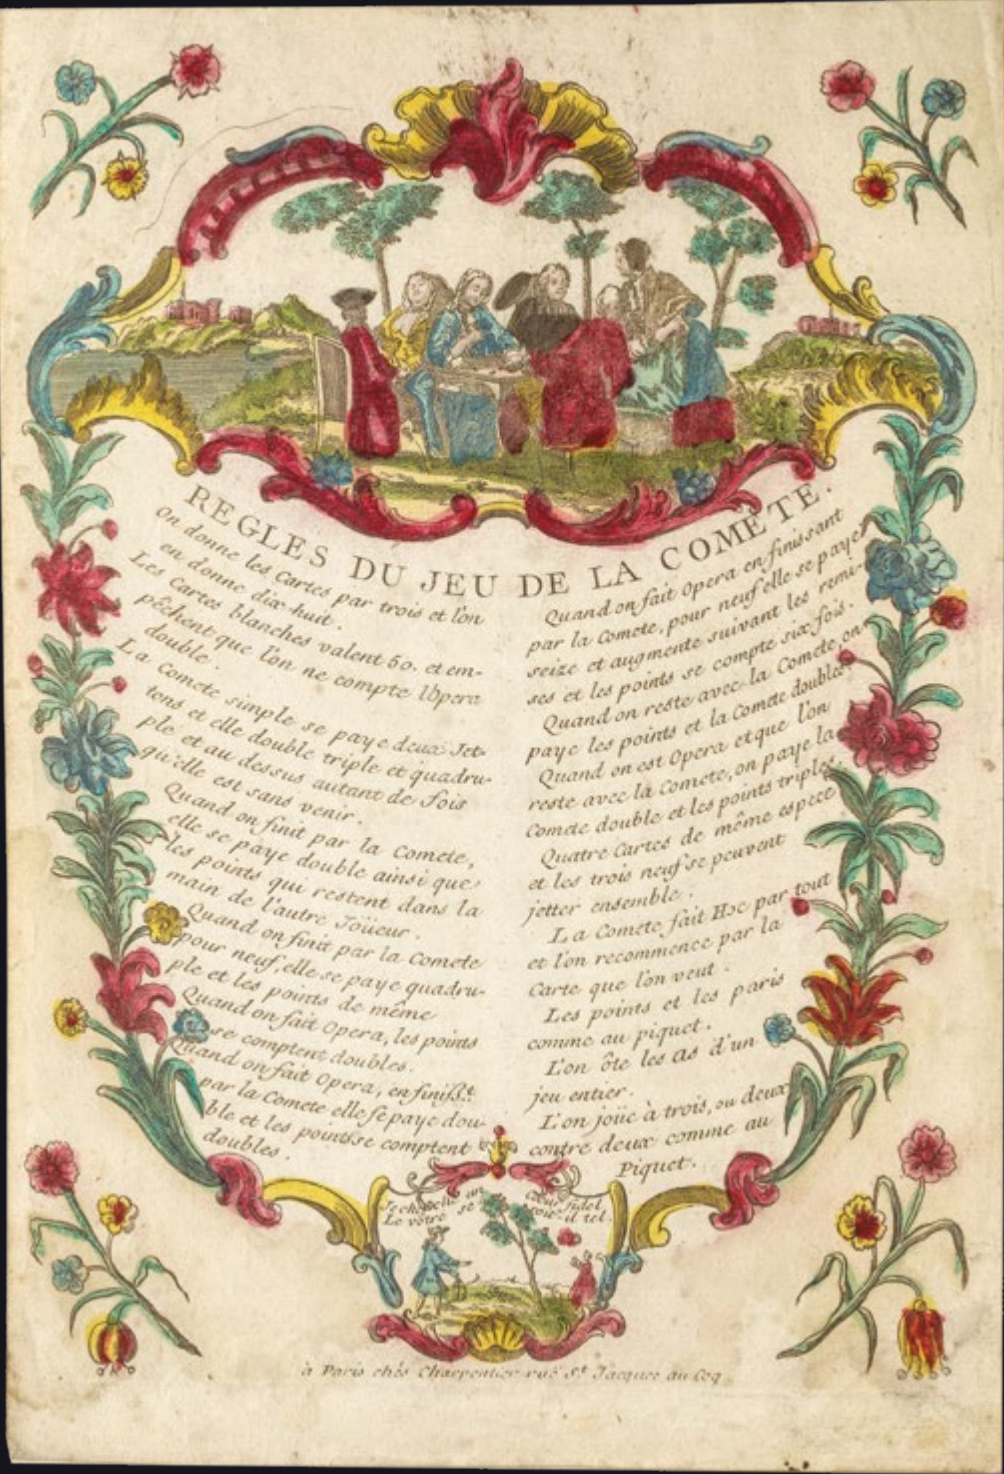 REGLES DU JEU DE LA COMETE.
On donne les Cartes par trois et l'on
en donne dix-huit.
Les Cartes blanches valent 50. et em-
pêchent que l'on ne compte l'Opera
double.
La Comete simple se paye deux Jet-
tons et elle double triple et quadru-
ple et au dessus autant de fois
qu'elle est sans venir.
Quand on finit par la Comete,
elle se paye double ainsi que
les points qui restent dans la
main de l'autre Joüeur.
Quand on finit par la Comete
pour neuf, elle se paye quadru-
ple et les points de même
Quand on fait Opera, les points
se comptent doubles.
Quand on fait Opera, en finisst.
par la Comete elle se paye dou-
ble et les points se comptent
doubles.
Quand on fait Opera en finissant
par la Comete, pour neuf elle se paye
seize et augmente suivant les remi-
ses et les points se compte six fois.
Quand on reste avec la Comete, on
paye les points et la Comete doubles.
Quand on est Opera et que l'on
reste avec la Comete, on paye la
Comete double et les points triples.
Quatre Cartes de même espece
et les trois neuf se peuvent
jetter ensemble.
La Comete fait Hoc par tout
et l'on recommence par la
Carte que l'on veut.
Les points et les paris
comme au piquet.
L'on ôte les as d'un
jeu entier.
L'on joüe à trois, ou deux
contre deux comme au
Piquet.
Je cherche un Coeur fidel
Le votre se il tel.
à Paris chés Charpentier rue St. Jacques au Coq